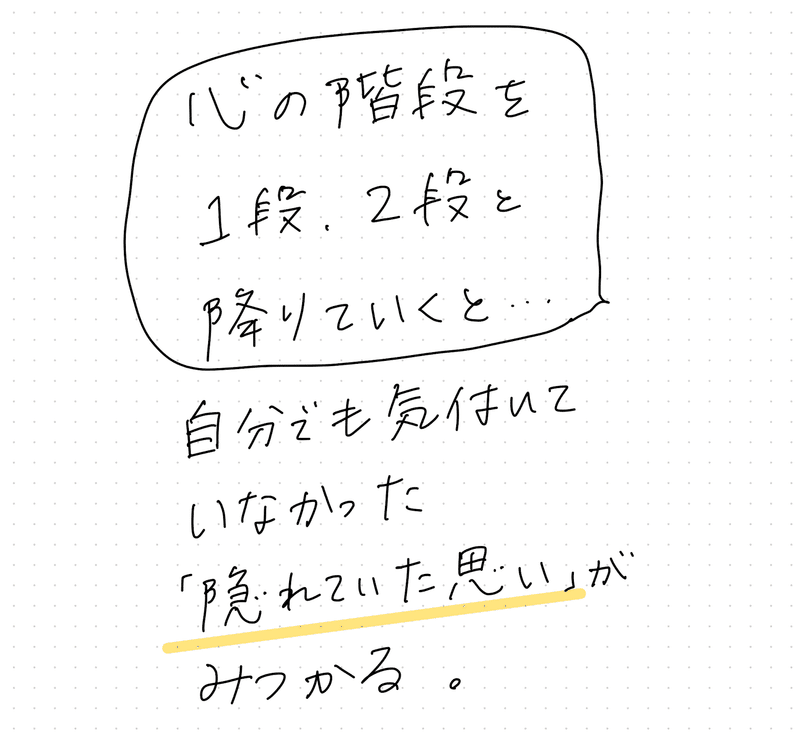 心の階段を
1段、2段と
降りていくと…
自分でも気付いて
いなかった
「隠れていた思い」が
みつかる。